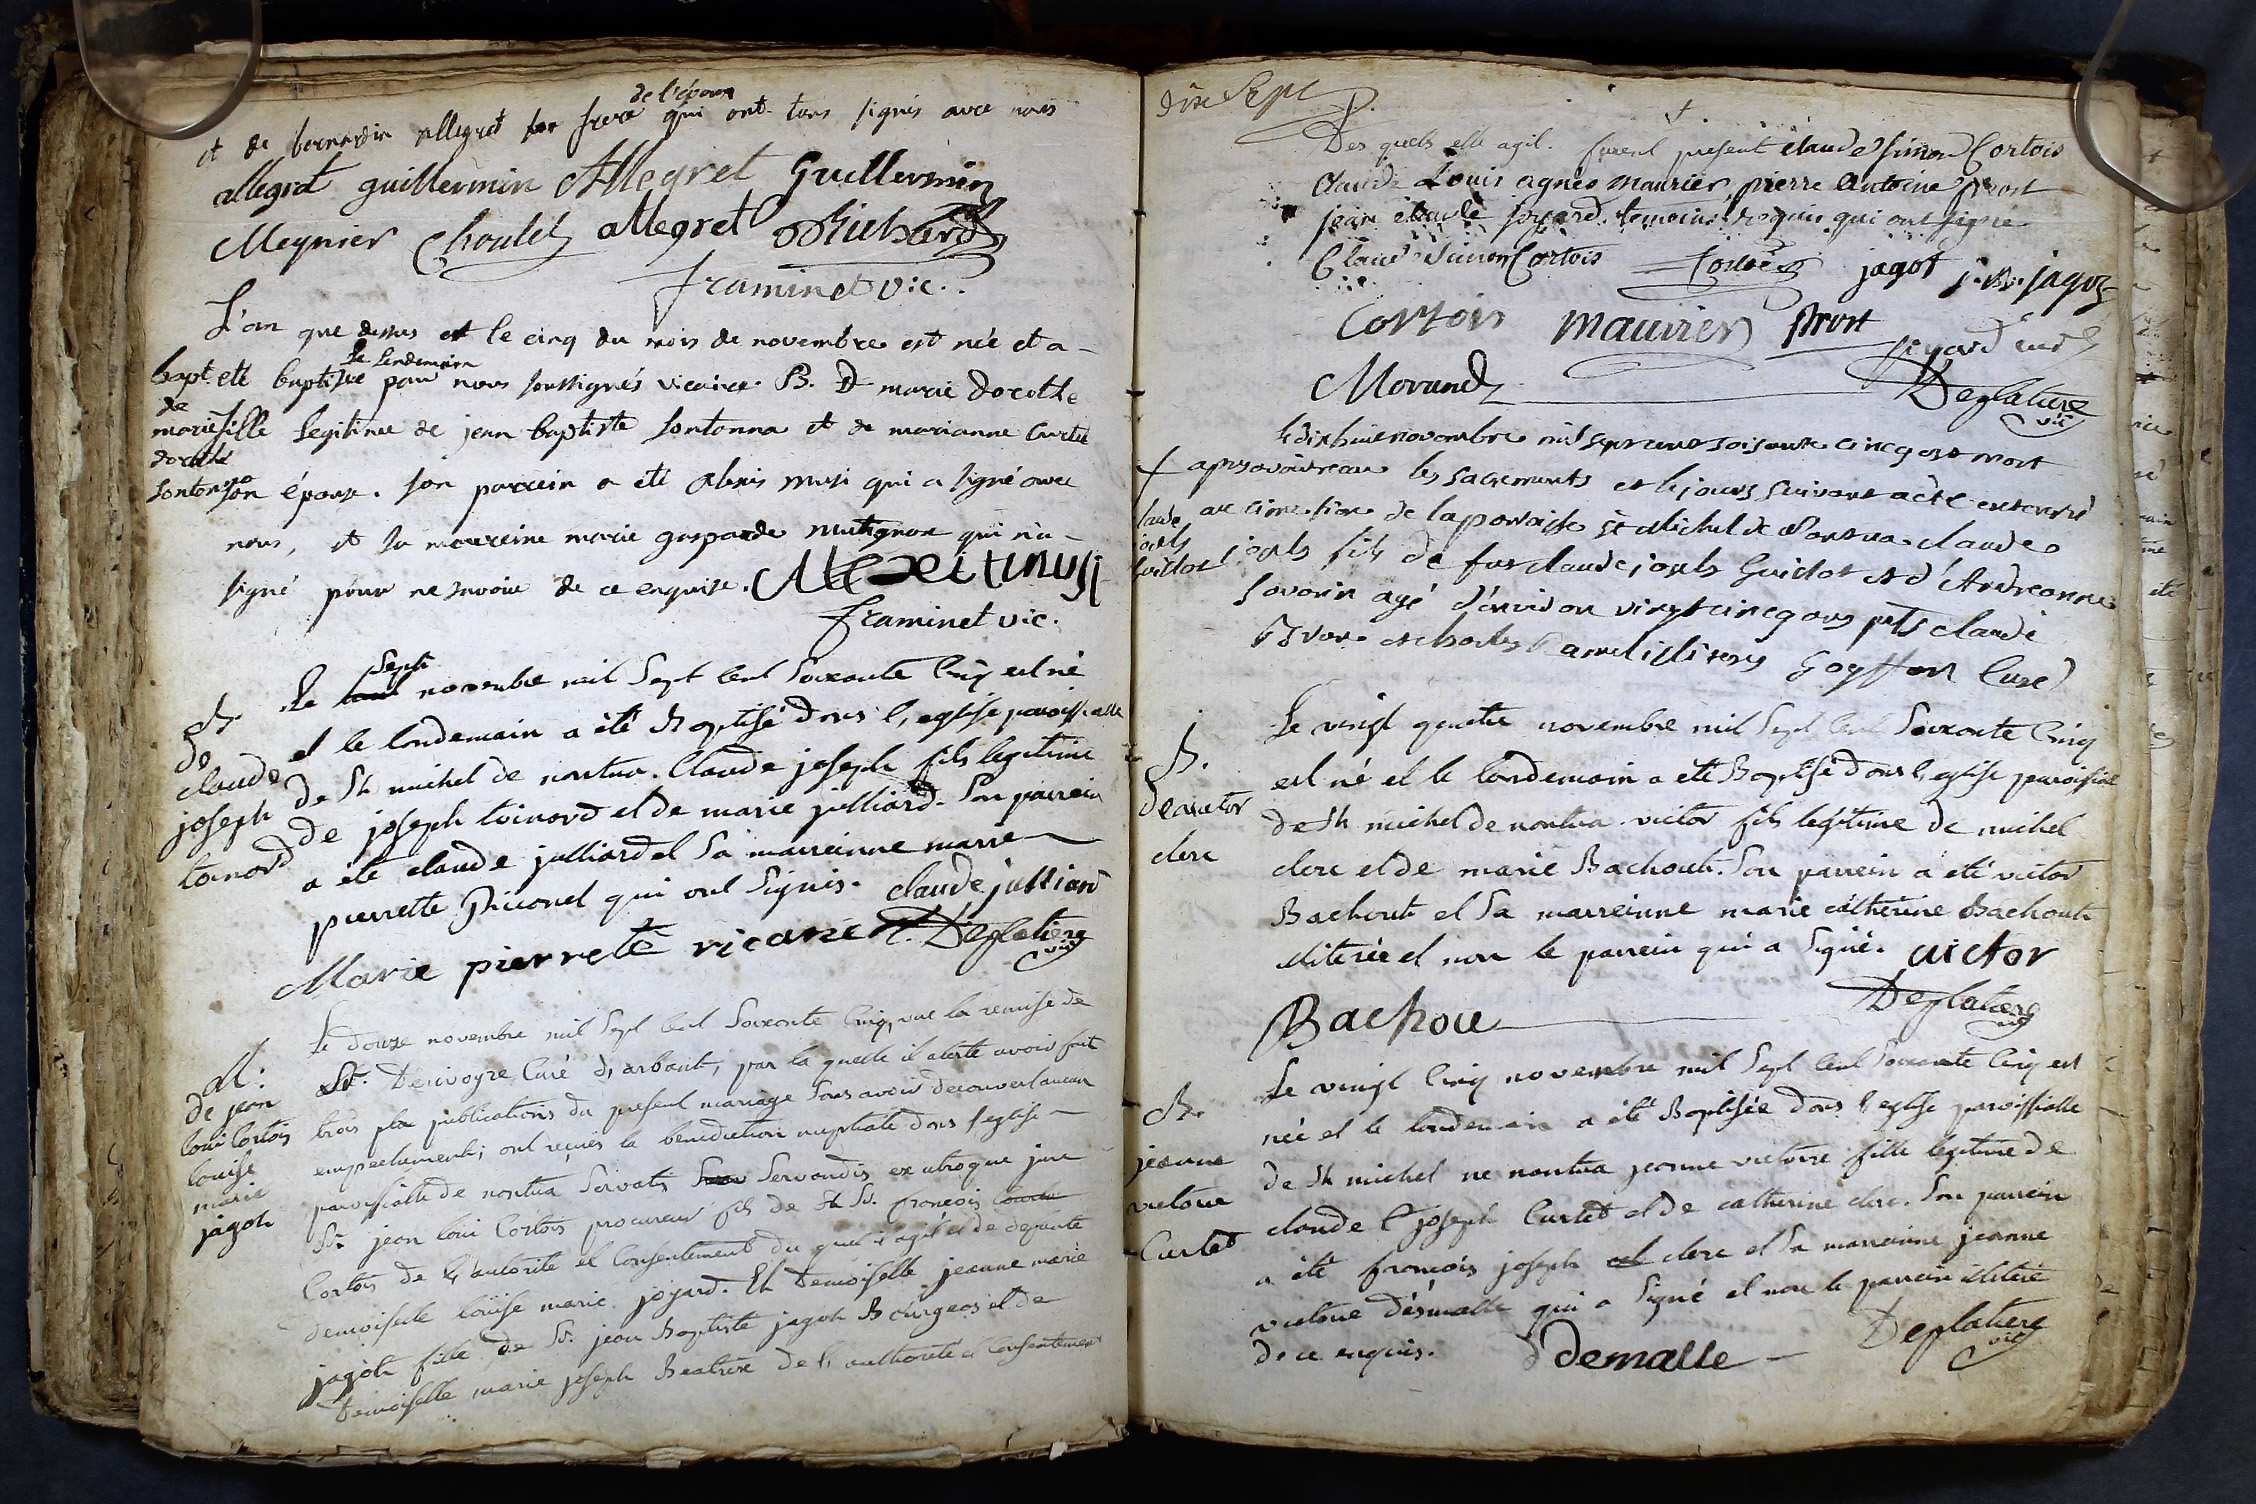 de l'époux
et de bernardin allegret frere qui ont tous signés avec nous
allegret guillermin Allegret Guillermin
Meynier Choulet allegret Richard
framinet vic.
L'an que dessus et le cinq du mois de novembre est née et a
le lendemain
été baptisée par nous soussignés vicaire marie dorothe
fille legitime de jean baptiste sontonna et de marianne curtet
son épouse. son parrein a été alexis musi qui a signé avec
nous, et sa marreine marie gasparde mutignon qui n'a
signé pour ne savoir de ce enquise. Alexi musi
framinet vic.
bapt.
de
marie
dorothé
sontonna
sept
Le novembre mil Sept Cent Soixante Cinq est né
et le londemain a été Baptisé dans l, eglise paroissialle
de St michel de nantua. Claude joseph fils legitime
de joseph toinard et de marie julliard. Son parrein
a été claude julliard et Sa marreinne marie
pierrette Picanet qui ont Signés. claude julliard
Marie pierrete ricanet. Deplatiere
vic
B.
de
claude
joseph
toinard
Le douze novembre mil Sept Cent Soixante Cinq, vue la remise de
Sr. Derivoyre Curé d, arbant, par la quelle il atteste avoir fait
trois publications du present mariage Sans avoir decouvert aucun
empechement; ont reçues la benediction nuptiale dans l'eglise
paroissialle de nantua Servatis Servandis ex utroque jure
Sr. jean loui Cortois procureur fils de Sr. francois
Cortois de l, autorité et Consentement du quel il agit et de defunte
demoiselle loüise marie joyard. Et Demoiselle jeanne marie
jagot fille de Sr. jean Baptiste jagot Bourgeois et de
Demoiselle marie joseph Beatrix de l, authorité et Consentement
M:
de jean
loui Cortois
louise
marie
jagot
dix Sept
Des quels elle agit. furent present claude simon Cortois
claude Louis agnes maurier, pierre antoine prost
jean claude joyard temoins requis qui ont signé
Claud Simon Cortois Cortois jagot j. B. jagot
Cortois maurier prost
joyard curé
Morand Deplatiere
vic
le dixhuit novembre mil sept cent soisante cincq est mort
apres avoir receu les sacrements et le jours suivant a été enterré
au cimetiere de la paroisse st Michel de Nantua claude
jouls fils de feu claude jouls Guidot et d'Andreanne
Savarin agé d'environ vingt cincq ans pnts claude
Goyffon Curé
claude
jouls
Guidot
Le vingt quatre novembre mil Sept Cent Soixante Cinq
est né et le londemain a été Baptisé dans l, eglise paroissialle
de St michel de nantua victor fils légitime de michel
clerc et de marie Bachout. Son parrein a été victor
Bachout et Sa marreinne marie catherine Bachout
illiterée et non le parrein qui a Signé. victor
Bachou Deplatiere
vic
B.
de victor
clerc
Le vingt Cinq novembre mil Sept Cent Soixante Cinq est
née et le londemain a été Baptisée dans l, eglise paroissialle
de St michel ne nantua jeanne victoire fille legitime de
claude joseph Curtet et de catherine clerc. Son parrein
a été francois joseph clerc et Sa marreinne jeanne
victoire désmalle qui a Signé et non le parrein illiteré
de ce enquis. demalle Deplatiere
vic
B.
jeanne
victoire
Curtet